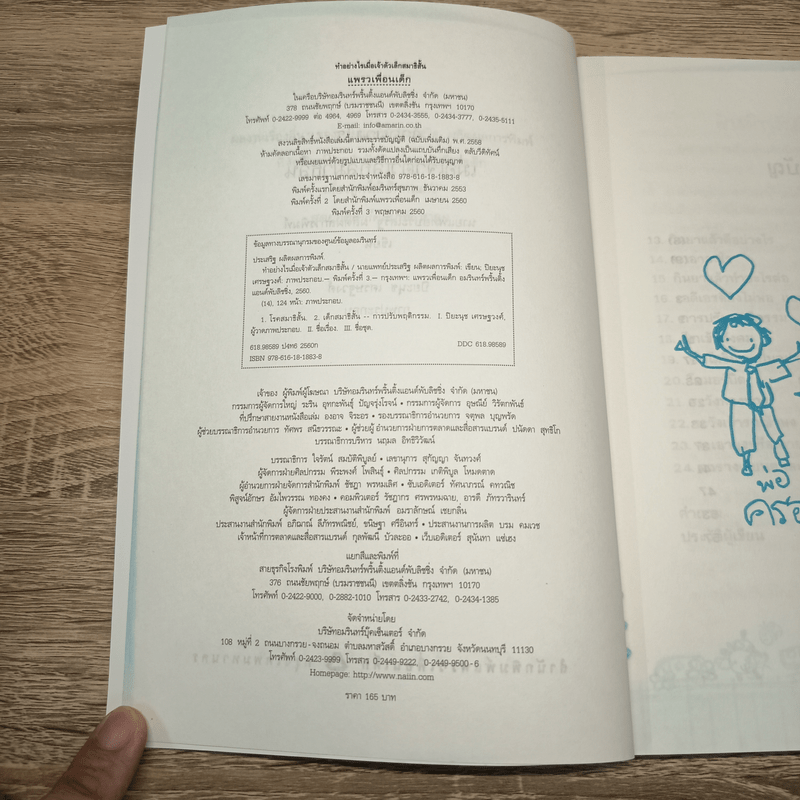 ทำอย่างไรเมื่อเจ้าตัวเล็กสมาธิสั้น
แพรวเพื่อนเด็ก
ในเครือบริษัทอมรินทร์พริ้นติ้งแอนด์พับลิชชิ่ง จำกัด (มหาชน)
378 ถนนชัยพฤกษ์ (บรมราชชนนี) เขตตลิ่งชัน กรุงเทพฯ 10170
โทรศัพท์ 0-2422-9999 ต่อ 4964, 4969 โทรสาร 0-2434-3555, 0-2434-3777, 0-2435-5111
E-mail: info@amarin.co.th
สงวนลิขสิทธิ์หนังสือเล่มนี้ตามพระราชบัญญัติ (ฉบับเพิ่มเติม) พ.ศ. 2558
ห้ามคัดลอกเนื้อหา ภาพประกอบ รวมทั้งดัดแปลงเป็นแถบบันทึกเสียง ตลับวีดิทัศน์
หรือเผยแพร่ด้วยรูปแบบและวิธีการอื่นใดก่อนได้รับอนุญาต
เลขมาตรฐานสากลประจำหนังสือ 978-616-18-1883-8
พิมพ์ครั้งแรกโดยสำนักพิมพ์อมรินทร์สุขภาพ ธันวาคม 2553
พิมพ์ครั้งที่ 2 โดยสำนักพิมพ์แพรวเพื่อนเด็ก เมษายน 2560
พิมพ์ครั้งที่ 3 พฤษภาคม 2560
ข้อมูลทางบรรณานุกรมของศูนย์ข้อมูลอมรินทร์
ประเสริฐ ผลิตผลการพิมพ์.
ทำอย่างไรเมื่อเจ้าตัวเล็กสมาธิสั้น / นายแพทย์ประเสริฐ ผลิตผลการพิมพ์: เขียน; ปิยะนุช
เศรษฐวงศ์: ภาพประกอบ.-- พิมพ์ครั้งที่ 3.-- กรุงเทพฯ: แพรวเพื่อนเด็ก อมรินทร์พริ้นติ้ง
แอนด์พับลิชชิ่ง, 2560.
(14), 124 หน้า: ภาพประกอบ.
1. โรคสมาธิสั้น. 2. เด็กสมาธิสั้น -- การปรับพฤติกรรม. I. ปิยะนุช เศรษฐวงศ์,
ผู้วาดภาพประกอบ. II. ชื่อเรื่อง. III. ชื่อชุด.
618.98589 ป476 2560ก DDC 618.98589
ISBN 978-616-18-1883-8
เจ้าของ ผู้พิมพ์ผู้โฆษณา บริษัทอมรินทร์พริ้นติ้งแอนด์พับลิชชิ่ง จำกัด (มหาชน)
กรรมการผู้จัดการใหญ่ ระริน อุทกะพันธุ์ ปัญจรุ่งโรจน์ • กรรมการผู้จัดการ อุษณีย์ วิรัตกพันธ์
ที่ปรึกษาสายงานหนังสือเล่ม องอาจ จิระอร • รองบรรณาธิการอำนวยการ จตุพล บุญพรัด
ผู้ช่วยบรรณาธิการอำนวยการ ทัศพร สนิธวรรณะ • ผู้ช่วยผู้อำนวยการฝ่ายการตลาดและสื่อสารแบรนด์ ปนัดดา สุทธิโก
บรรณาธิการบริหาร นฤมล อิทธิวิวัฒน์
บรรณาธิการ ใจรัตน์ สมบัติพิบูลย์ • เลขานุการ สุกัญญา จันทวงศ์
ผู้จัดการฝ่ายศิลปกรรม พีระพงศ์ โพสินธุ์ • ศิลปกรรม เกดิพิบูล โหมดตาด
ผู้อำนวยการฝ่ายจัดการสำนักพิมพ์ ชัชฎา พรหมเลิศ • ซับเอดิเตอร์ ทัศนาภรณ์ คหวณิช
พิสูจน์อักษร อัมไพวรรณ ทองคง • คอมพิวเตอร์ รัชฎากร ศรพรหมฉาย, อารดี ภัทรวารินทร์
ผู้จัดการฝ่ายประสานงานสำนักพิมพ์ อมราลักษณ์ เชยกลิ่น
ประสานงานสำนักพิมพ์ อภิฌาณ์ ลีภัทรพณิชย์, ชนิษฐา ศรีอินทร์ • ประสานงานการผลิต บรม คมเวช
เจ้าหน้าที่การตลาดและสื่อสารแบรนด์ กุลพัฒน์ บัวละออ • เว็บเอดิเตอร์ สุนันทา แซ่เฮง
แยกสีและพิมพ์ที่
สายธุรกิจโรงพิมพ์ บริษัทอมรินทร์พริ้นติ้งแอนด์พับลิชชิ่ง จำกัด (มหาชน)
376 ถนนชัยพฤกษ์ (บรมราชชนนี) เขตตลิ่งชัน กรุงเทพฯ 10170
โทรศัพท์ 0-2422-9000, 0-2882-1010 โทรสาร 0-2433-2742, 0-2434-1385
จัดจำหน่ายโดย
บริษัทอมรินทร์บุ๊คเซ็นเตอร์ จำกัด
108 หมู่ที่ 2 ถนนบางกรวย-จงถนอม ตำบลมหาสวัสดิ์ อำเภอบางกรวย จังหวัดนนทบุรี 11130
โทรศัพท์ 0-2423-9999 โทรสาร 0-2449-9222, 0-2449-9500-6
Homepage: http://www.naiin.com
ราคา 165 บาท
พ่อ